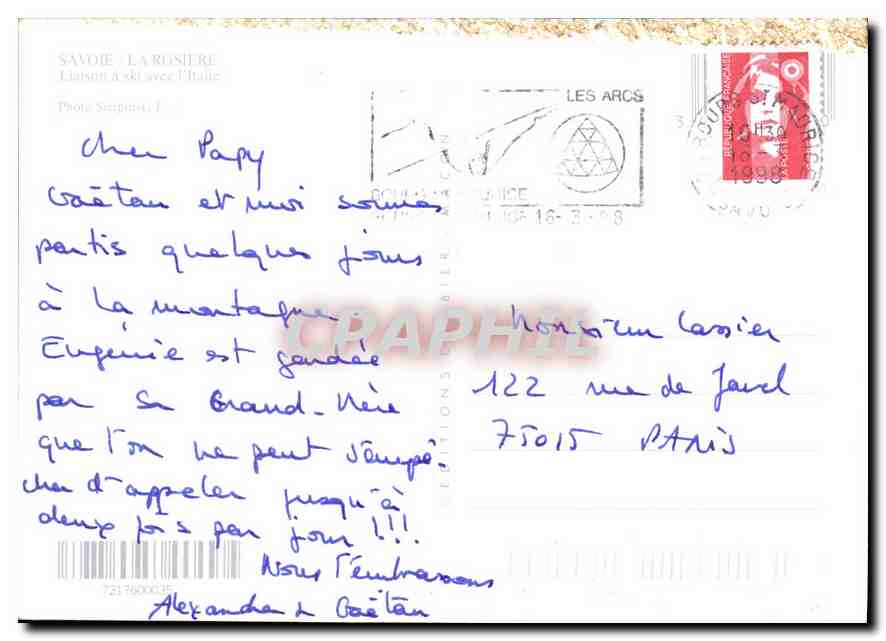 SAVOIE - LA ROSIERE
Liaison à ski avec l'Italie
Photo
LES ARCS
BOURG ST MAURICE
16-3-98
BOURG ST MAURICE
1998
REPUBLIQUE FRANÇAISE
LA POSTE
Cher Papy
Gaëtan et moi sommes
partis quelques jours
à la montagne
Eugénie est gardée
par sa Grand-Mère
que l'on ne peut s'empê-
cher d'appeler jusqu'à
deux fois par jour !!!
Nous t'embrassons
Alexandra & Gaëtan
Monsieur Cassier
122 rue de Javel
75015 PARIS
EDITIONS
7217600035
CPAPHIL